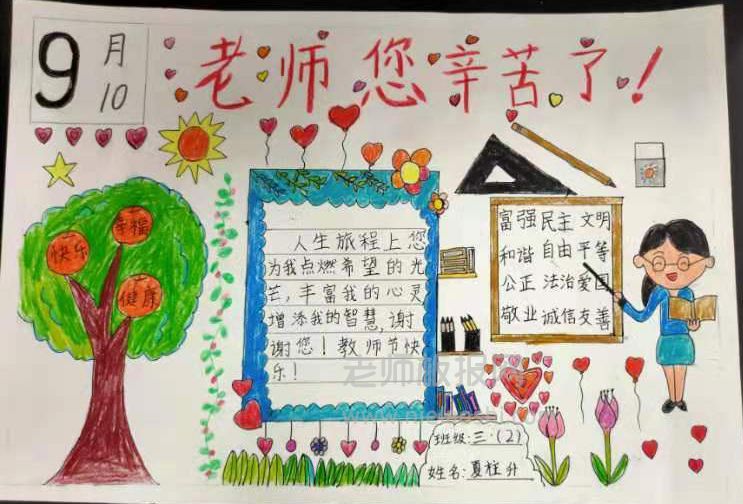 9月10
老师您辛苦了!
幸福
快乐
健康
人生旅程上您
为我点燃希望的光
芒,丰富我的心灵
增添我的智慧,谢
谢您!教师节快
乐!
富强 民主 文明
和谐 自由 平等
公正 法治 爱国
敬业 诚信 友善
班级:三·(2)
姓名:夏梓升
老师板报网